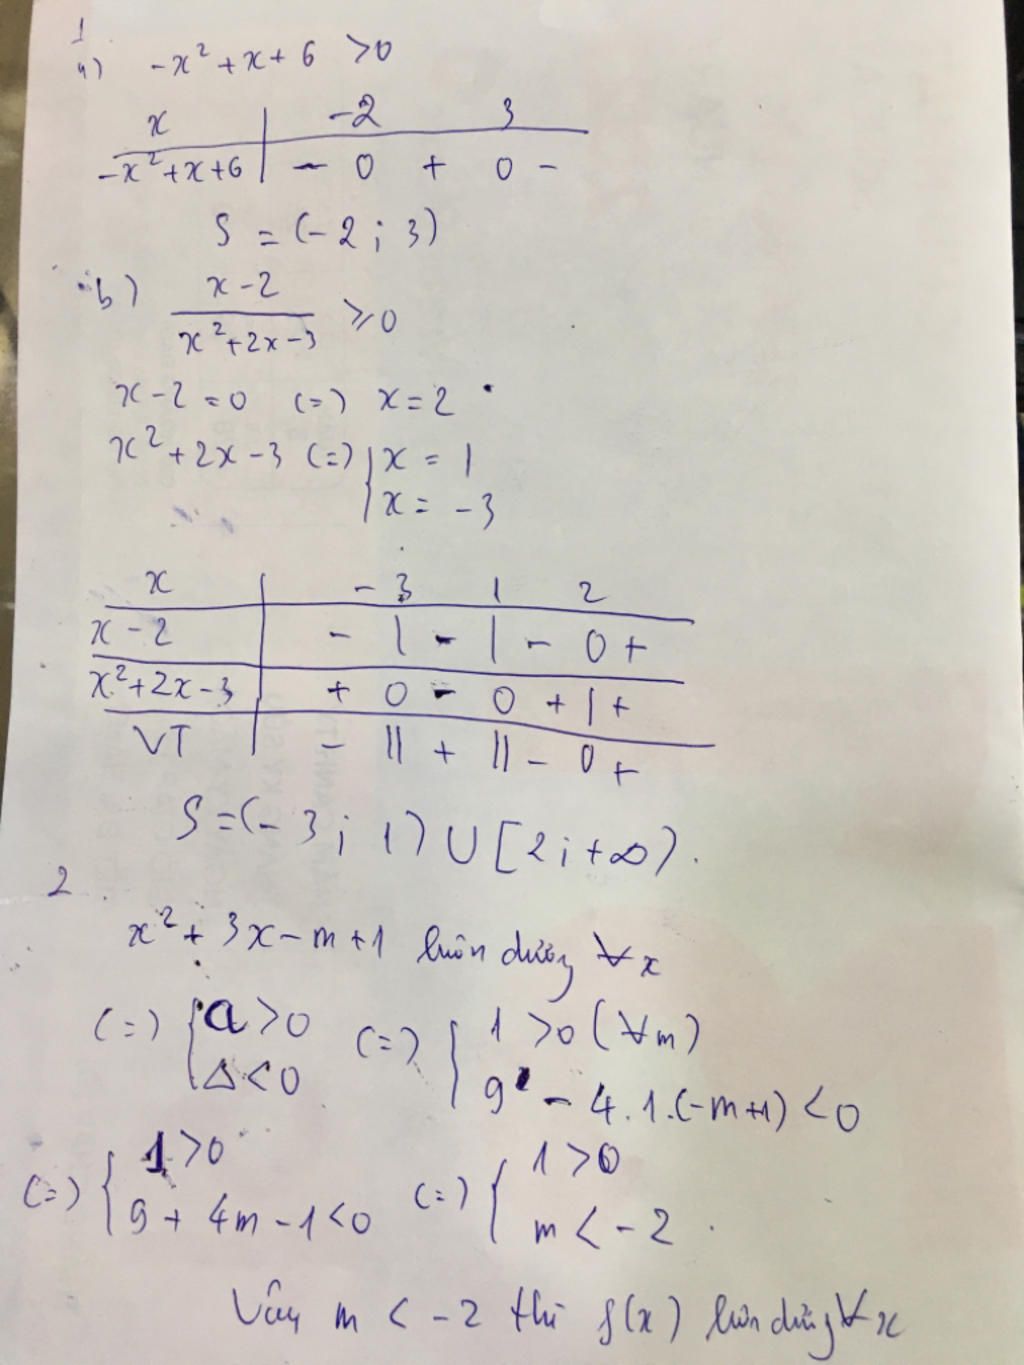 1
a) -x² + x + 6 > 0
x | -2 3
-x²+x+6 | - 0 + 0 -
S = (-2 ; 3)
b) x - 2
x²+2x-3 ≥ 0
x - 2 = 0 (=) x = 2
x² + 2x - 3 (=) { x = 1
x = -3
x | -3 1 2
x - 2 | - | - | - 0 +
x²+2x-3 | + 0 - 0 + | +
VT | - || + || - 0 +
S = (-3 ; 1) ∪ [2 ; +∞).
2
x² + 3x - m + 1 luôn dương ∀x
(=) { a > 0 (=) { 1 > 0 (∀m)
Δ < 0 9 - 4.1.(-m+1) < 0
(=) { 1 > 0 (=) { 1 > 0
9 + 4m - 1 < 0 m < -2 .
Vậy m < -2 thì f(x) luôn dương ∀x